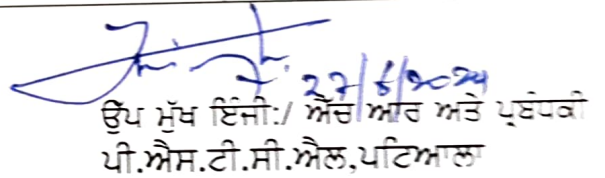 27/6/2024
ਉੱਪ ਮੁੱਖ ਇੰਜੀ:/ ਐੱਚ ਆਰ ਅਤੇ ਪ੍ਰਬੰਧਕੀ
ਪੀ.ਐਸ.ਟੀ.ਸੀ.ਐਲ,ਪਟਿਆਲਾ